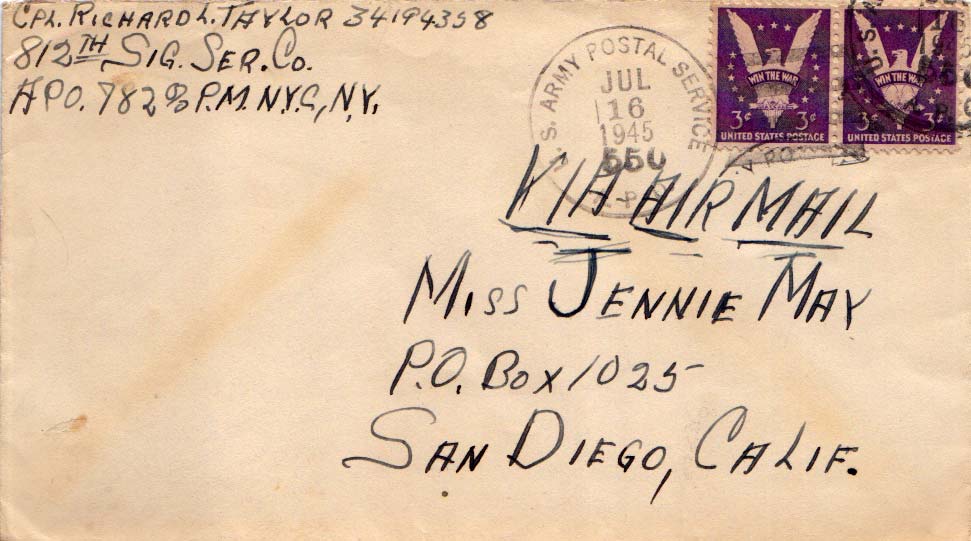 CPL. RICHARD L. TAYLOR 34194358
812TH SIG. SER. CO.
APO. 782 c/o P.M. N.Y.C, N.Y.
U.S. ARMY POSTAL SERVICE
JUL
16
1945
550
A.P.O.
WIN THE WAR
3¢ 3¢
UNITED STATES POSTAGE
WIN THE WAR
3¢ 3¢
UNITED STATES POSTAGE
VIA AIR MAIL
MISS JENNIE MAY
P.O. BOX 1025
SAN DIEGO, CALIF.